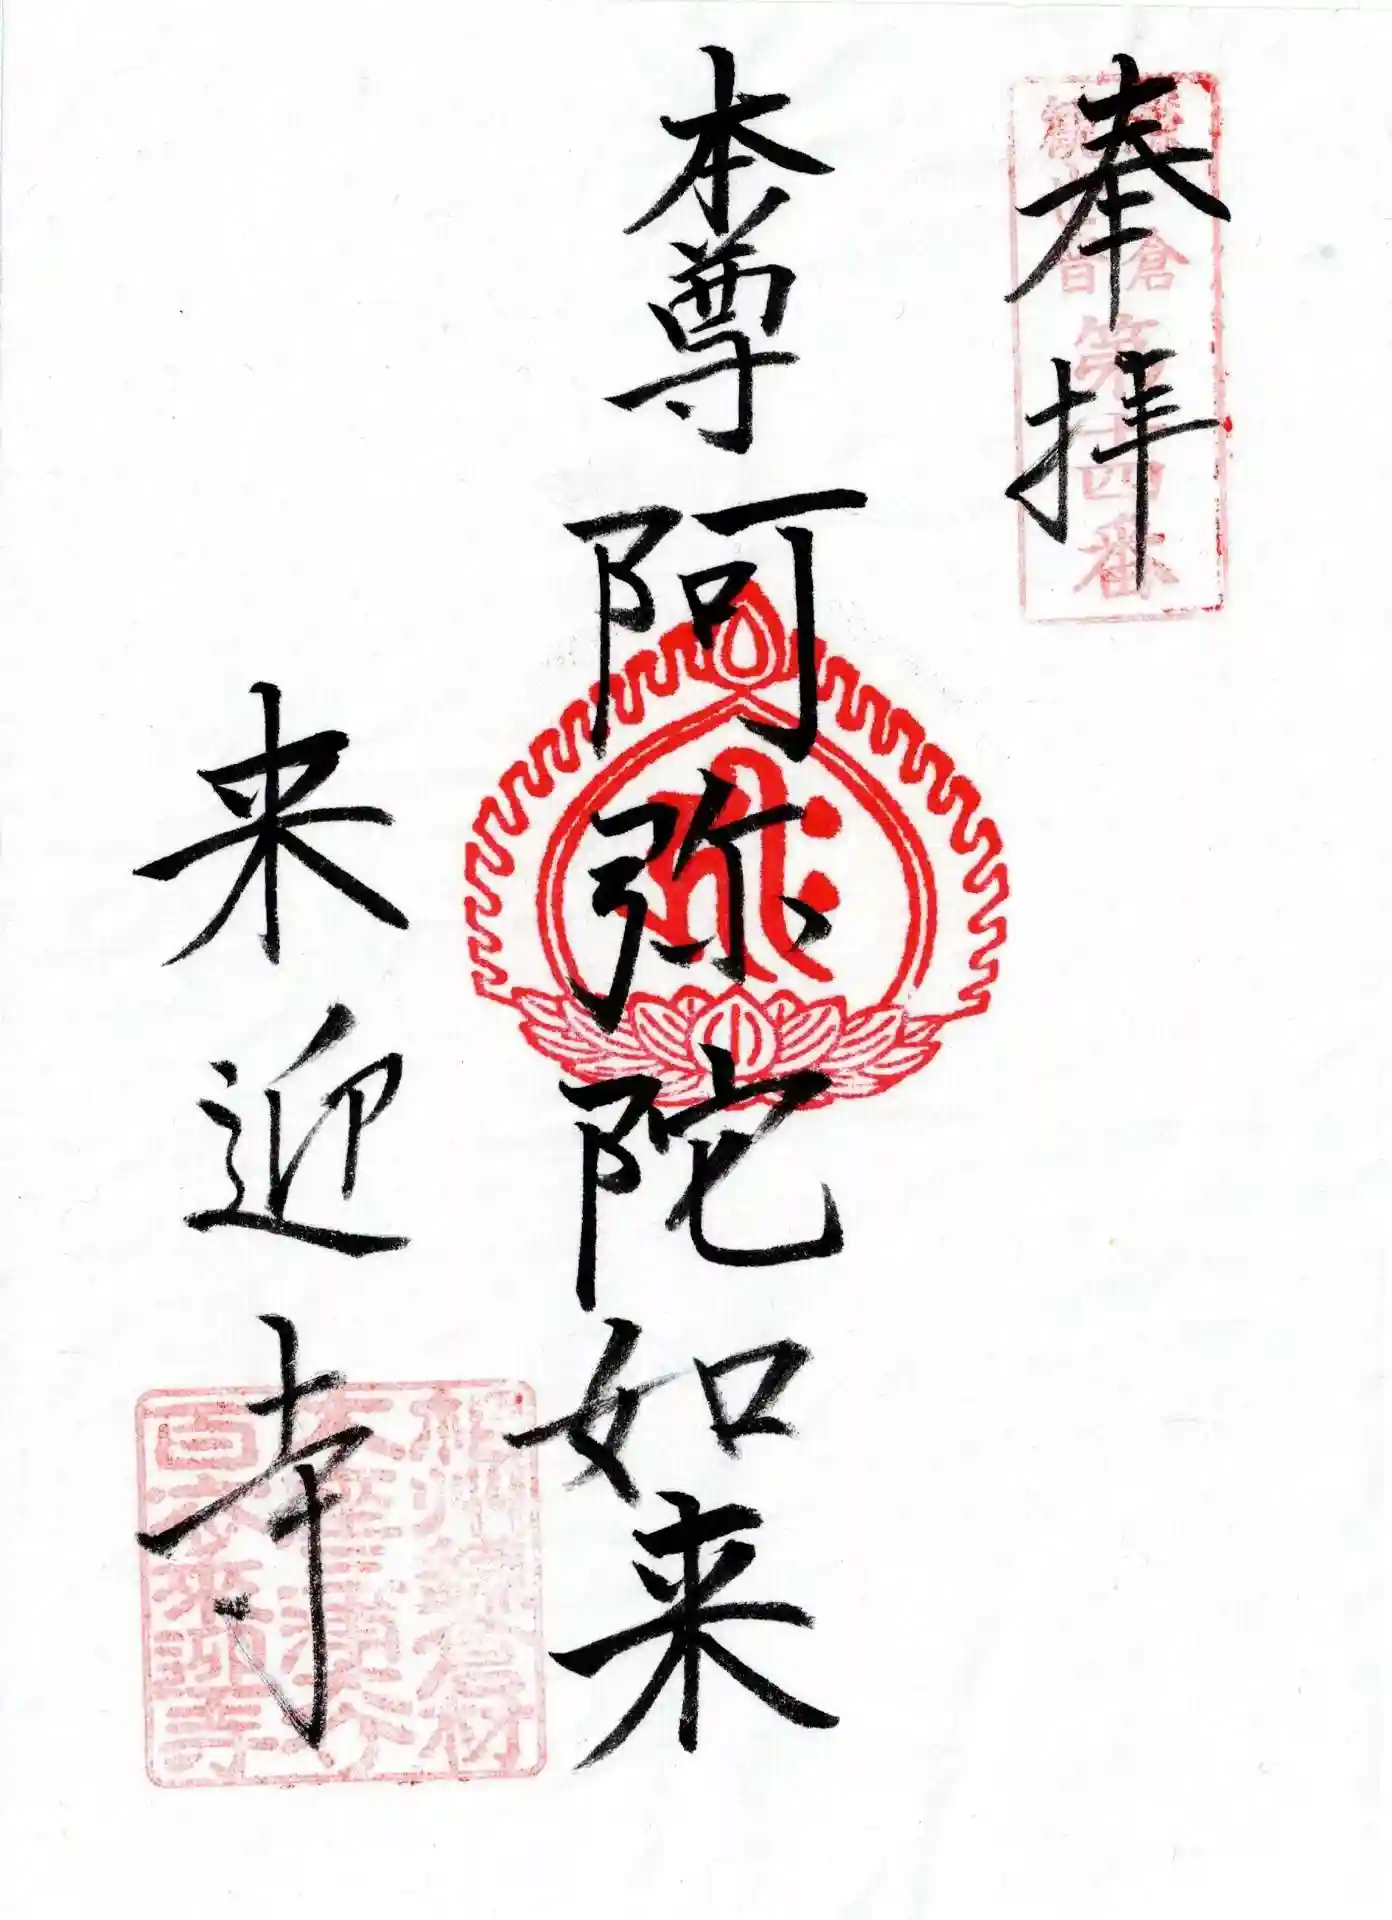 奉拝
鎌倉
観世音
第十四番
本尊 阿弥陀如来
来迎寺